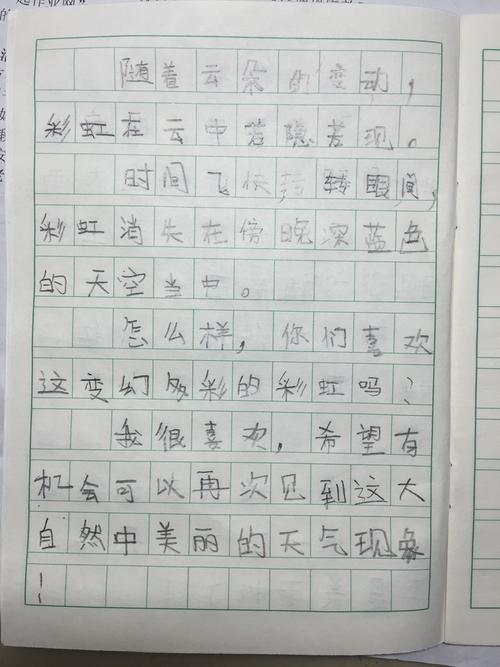 随着云朵的变动，
彩虹在云中若隐若现。
时间飞快，转眼间，
彩虹消失在傍晚深蓝色
的天空当中。
怎么样，你们喜欢
这变幻多彩的彩虹吗？
我很喜欢，希望有
机会可以再次见到这大
自然中美丽的天气现象
！